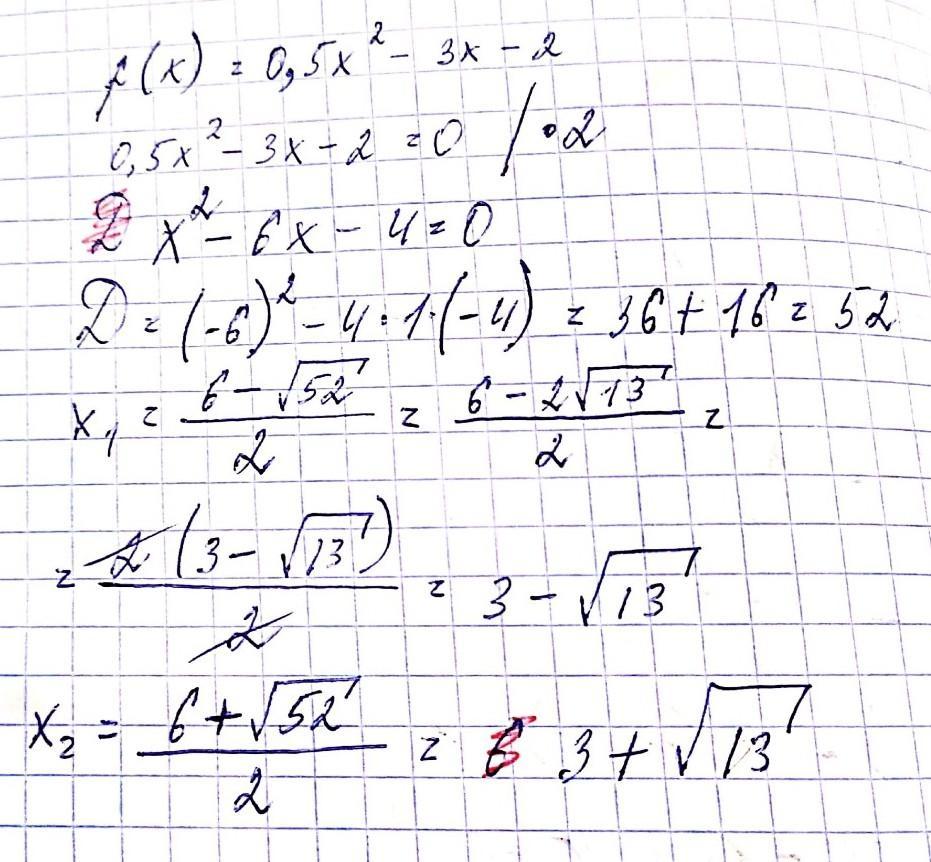 f(x) = 0,5x² - 3x - 2
0,5x² - 3x - 2 = 0 / • 2
x² - 6x - 4 = 0
D = (-6)² - 4 · 1 · (-4) = 36 + 16 = 52
x₁ = (6 - √52)/2 = (6 - 2√13)/2 =
= 2(3 - √13)/2 = 3 - √13
x₂ = (6 + √52)/2 = 3 + √13